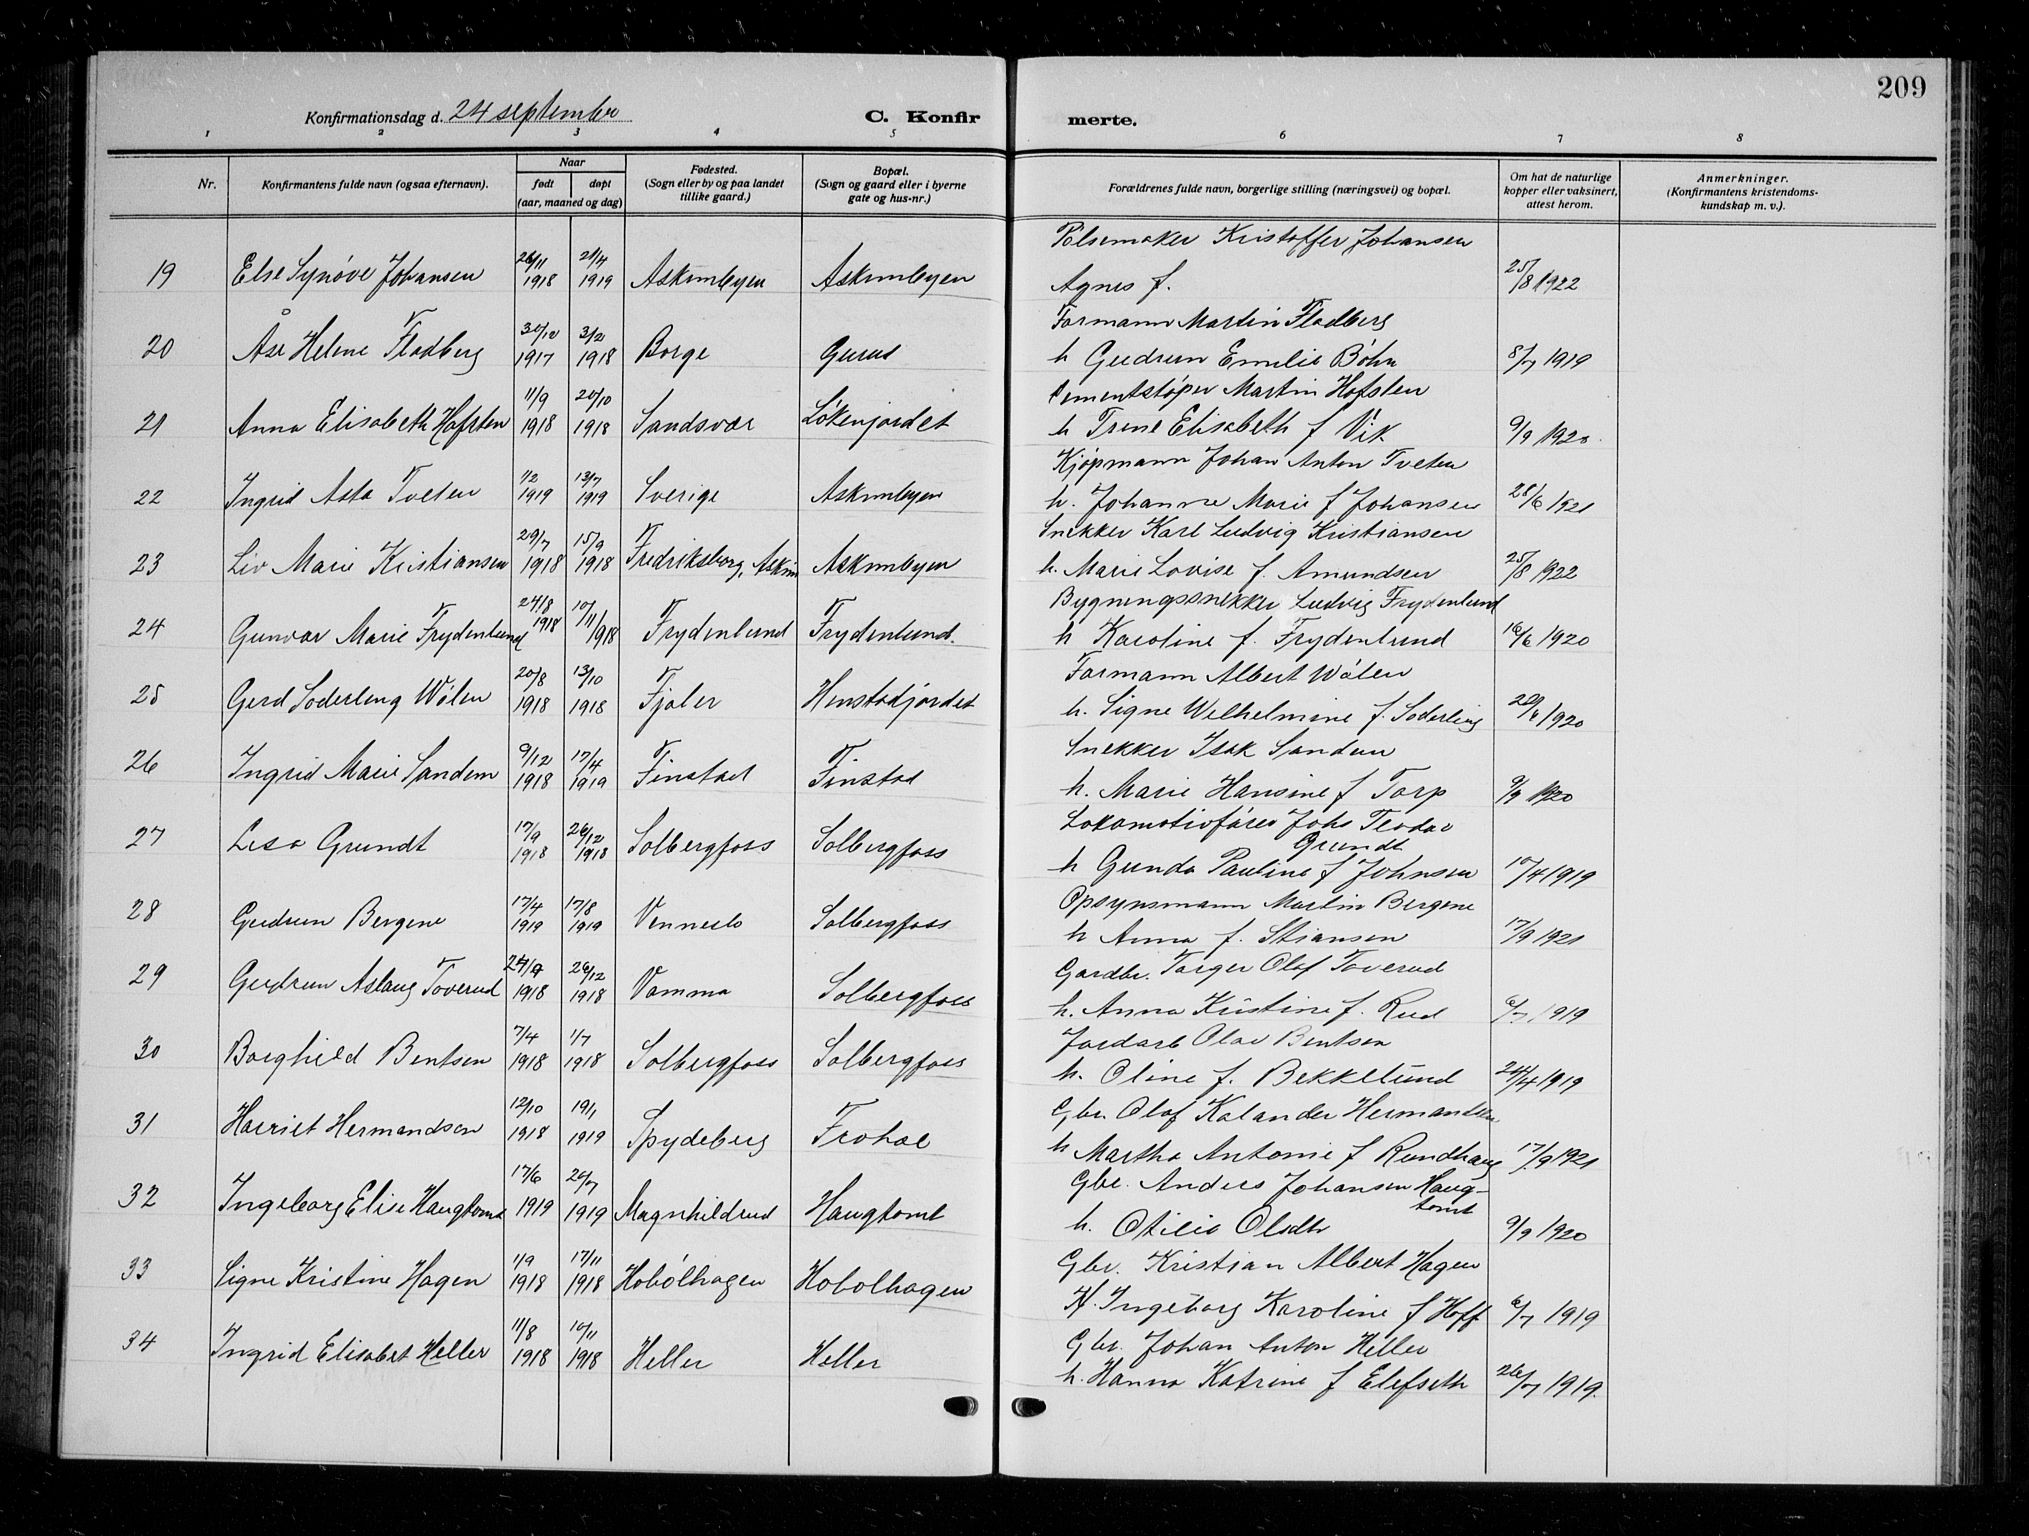 209
Konfirmationsdag d. 24 september C. Konfir merte.
1 2 3 4 5 6 7 8
Nr. Konfirmantens fulde navn (ogsaa efternavn). Naar født døpt (aar, maaned og dag) Fødested. (Sogn eller by og paa landet tillike gaard.) Bopæl. (Sogn og gaard eller i byerne gate og hus-nr.) Forældrenes fulde navn, borgerlige stilling (næringsvei) og bopæl. Om hat de naturlige kopper eller vaksinert, attest herom. Anmerkninger. (Konfirmantens kristendoms-kundskap m. v.).
Pølsemaker Kristoffer Johansen
19 Else Synøve Johansen 26/11 1918 21/4 1919 Askimbyen Askimbyen Agnes f. 25/8 1922
Formann Martin Fladberg
20 Åse Helene Fladberg 30/12 1917 3/2 1918 Borge Gurud h Gudrun Emilie Bøhn 8/7 1919
Sementstøper Martin Hofsten
21 Anna Elisabeth Hofsten 11/9 1918 20/10 1918 Sandsvær Løkenjordet h Trine Elisabeth f Vik 9/9 1920.
Kjøpmann Johan Anton Tveten
22 Ingrid Asta Tveten 1/2 1919 13/7 1919 Sverige Askimbyen h. Johanne Marie f Johansen 28/6 1921
Snekker Karl Ludvig Kristiansen
23 Liv Marie Kristiansen 29/7 1918 15/9 1918 Fredriksborg, Askim Askimbyen h. Marie Lovise f. Amundsen 25/8 1922
Bygningssnekker Ludvig Frydenlund
24 Gunvor Marie Frydenlund 24/8 1918 10/11 1918 Frydenlund Frydenlund. h Karoline f. Frydenlund 16/6 1920
Formann Albert Wølen
25 Gerd Soderling Wølen 20/8 1918 13/10 1918 Fjaler Henstadjordet h. Signe Wilhelmine f. Soderling 1920
Snekker Isak Sandem
26 Ingrid Marie Sandem 9/12 1918 17/4 1919 Finstad Finstad h. Marie Hansine f Torp 9/9 1920
Lokomotivfører Johs Teodor Grundt
27 Lisa Grundt 17/9 1918 26/12 1918 Solbergfoss Solbergfoss h Gunda Pauline f Johnsen 10/4 1919
Opsynsmann Martin Bergene
28 Gudrun Bergene 17/4 1919 17/8 1919 Vennesla Solbergfoss h Anna f. Stiansen 17/9 1921
Gardbr. Torger Olaf Toverud
29 Gudrun Aslaug Toverud 1918 26/12 1918 Vamma Solbergfoss h. Anna Kristine f. Rud 6/7 1919
Jordarb Olav Bentsen
30 Borghild Bentsen 7/4 1918 1/7 1918 Solbergfoss Solbergfoss h. Oline f. Bekkelund 24/4 1919
Gbr. Olaf Kalander Hermandsen
31 Harriet Hermandsen 12/10 1918 19/1 1919 Spydeberg Frohol h Martha Antonie f Rundhaug 17/9 1921
Gbr. Anders Johansen Haug-tomt
32 Ingeborg Elise Haugtomt 17/6 1919 20/7 1919 Magnhildrud Haugtomt h. Otilie Olsdtr 9/9 1920
Gbr. Kristian Albert Hagen
33 Signe Kristine Hagen 1/9 1918 17/11 1918 Hobølhagen Hobolhagen H. Ingeborg Karoline f Hoff 6/7 1919
Gbr. Johan Anton Heller
34 Ingrid Elisabet Heller 11/8 1918 10/11 1918 Heller Heller h. Hanna Katrine f Elefseth 26/7 1919.